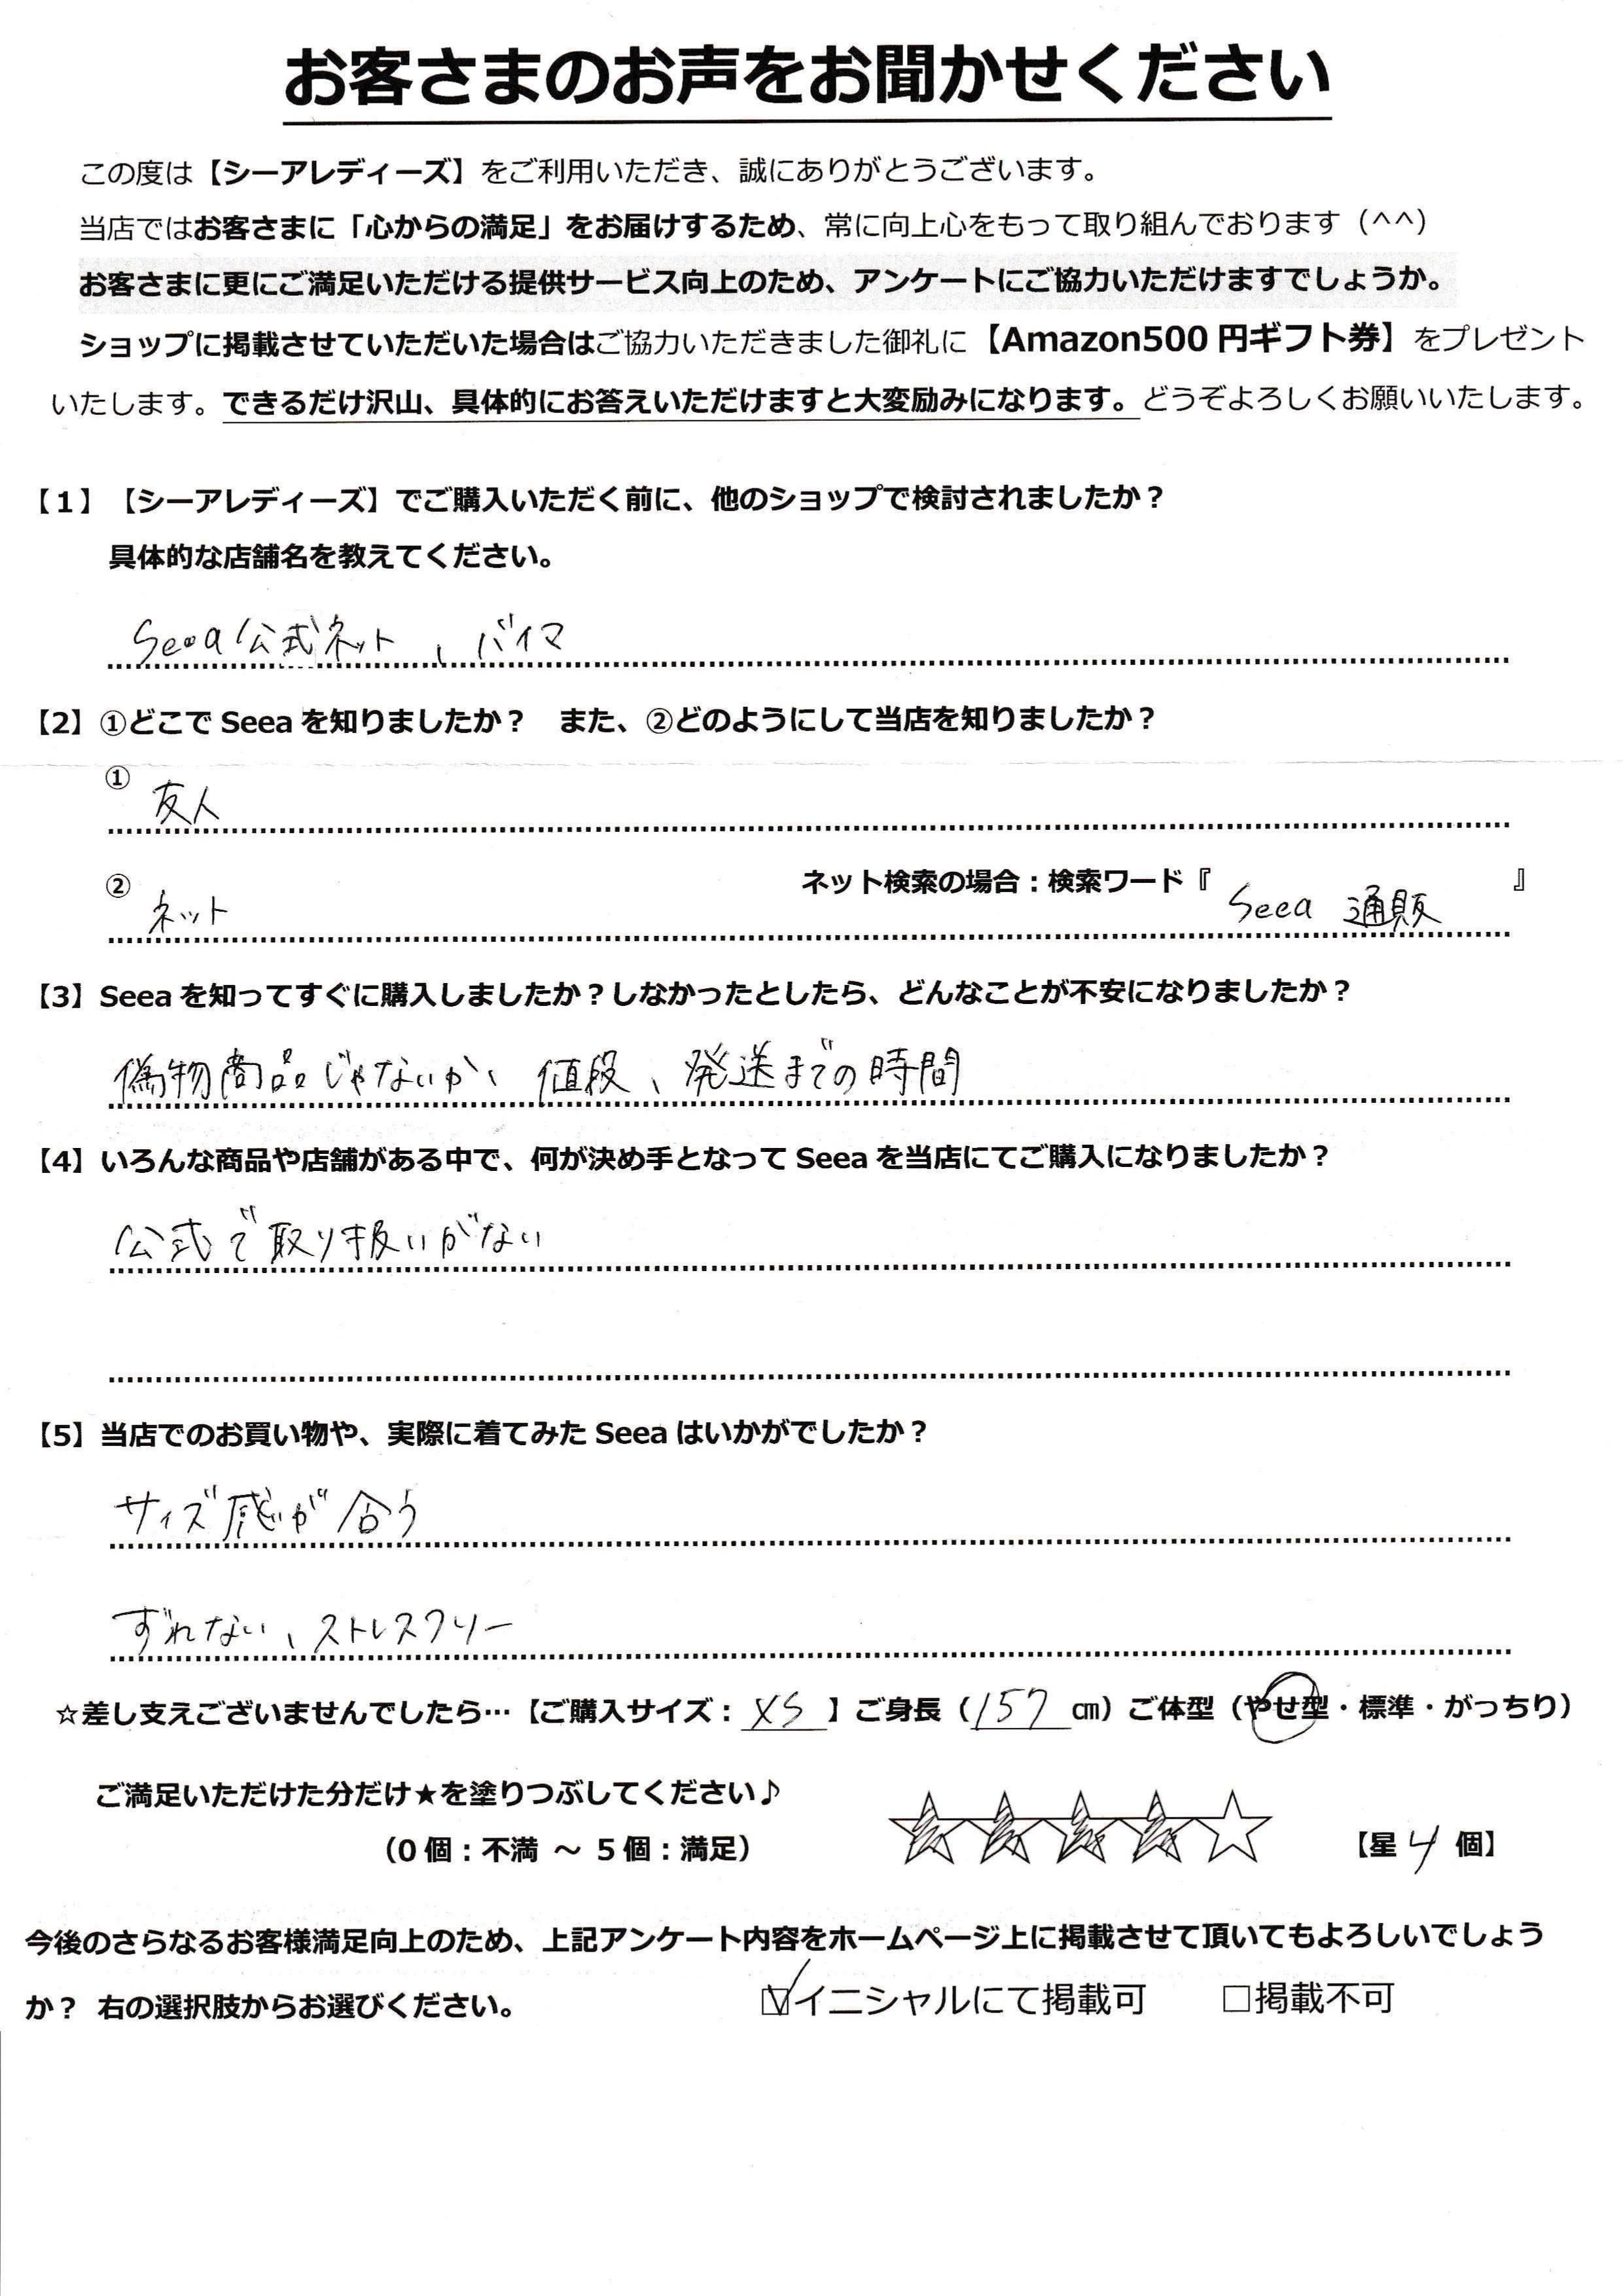 お客さまのお声をお聞かせください
この度は【シーアレディーズ】をご利用いただき、誠にありがとうございます。
当店ではお客さまに「心からの満足」をお届けするため、常に向上心をもって取り組んでおります（^^）
お客さまに更にご満足いただける提供サービス向上のため、アンケートにご協力いただけますでしょうか。
ショップに掲載させていただいた場合はご協力いただきました御礼に【Amazon500円ギフト券】をプレゼント
いたします。できるだけ沢山、具体的にお答えいただけますと大変励みになります。どうぞよろしくお願いいたします。
【1】【シーアレディーズ】でご購入いただく前に、他のショップで検討されましたか？
具体的な店舗名を教えてください。
Seea公式ネット、バイマ
【2】①どこで Seea を知りましたか？　また、②どのようにして当店を知りましたか？
① 友人
② ネット　ネット検索の場合：検索ワード『 Seea 通販 』
【3】Seea を知ってすぐに購入しましたか？しなかったとしたら、どんなことが不安になりましたか？
偽物商品じゃないか、値段、発送までの時間
【4】いろんな商品や店舗がある中で、何が決め手となって Seea を当店にてご購入になりましたか？
公式で取り扱いがない
【5】当店でのお買い物や、実際に着てみた Seea はいかがでしたか？
サイズ感が合う
ずれない、ストレスフリー
☆差し支えございませんでしたら…【ご購入サイズ：XS】ご身長（157㎝）ご体型（やせ型・標準・がっちり）
ご満足いただけた分だけ★を塗りつぶしてください♪
（0個：不満 ～ 5個：満足）　【星 4 個】
今後のさらなるお客様満足向上のため、上記アンケート内容をホームページ上に掲載させて頂いてもよろしいでしょう
か？ 右の選択肢からお選びください。　☑イニシャルにて掲載可　□掲載不可